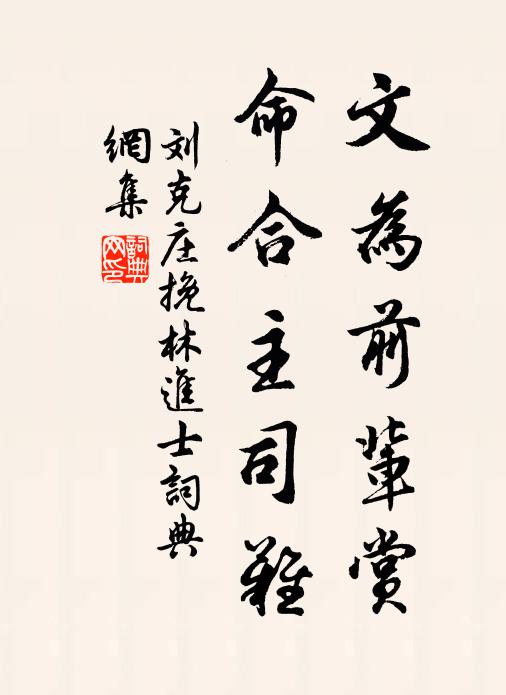 文為前輩賞
命合主司難
刘克庄挽林進士詞典
網集
詞典
网印